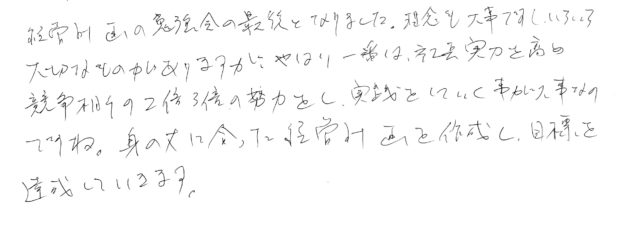 経営計画の勉強会の最終となりました。理念も大事ですし、いろいろ
大切なものがありますが、やはり一番は、社長実力を高め
競争相手の2倍3倍の努力をし、実践をしていく事が大事なの
ですね。身の丈に合った経営計画を作成し、目標を
達成していきます。